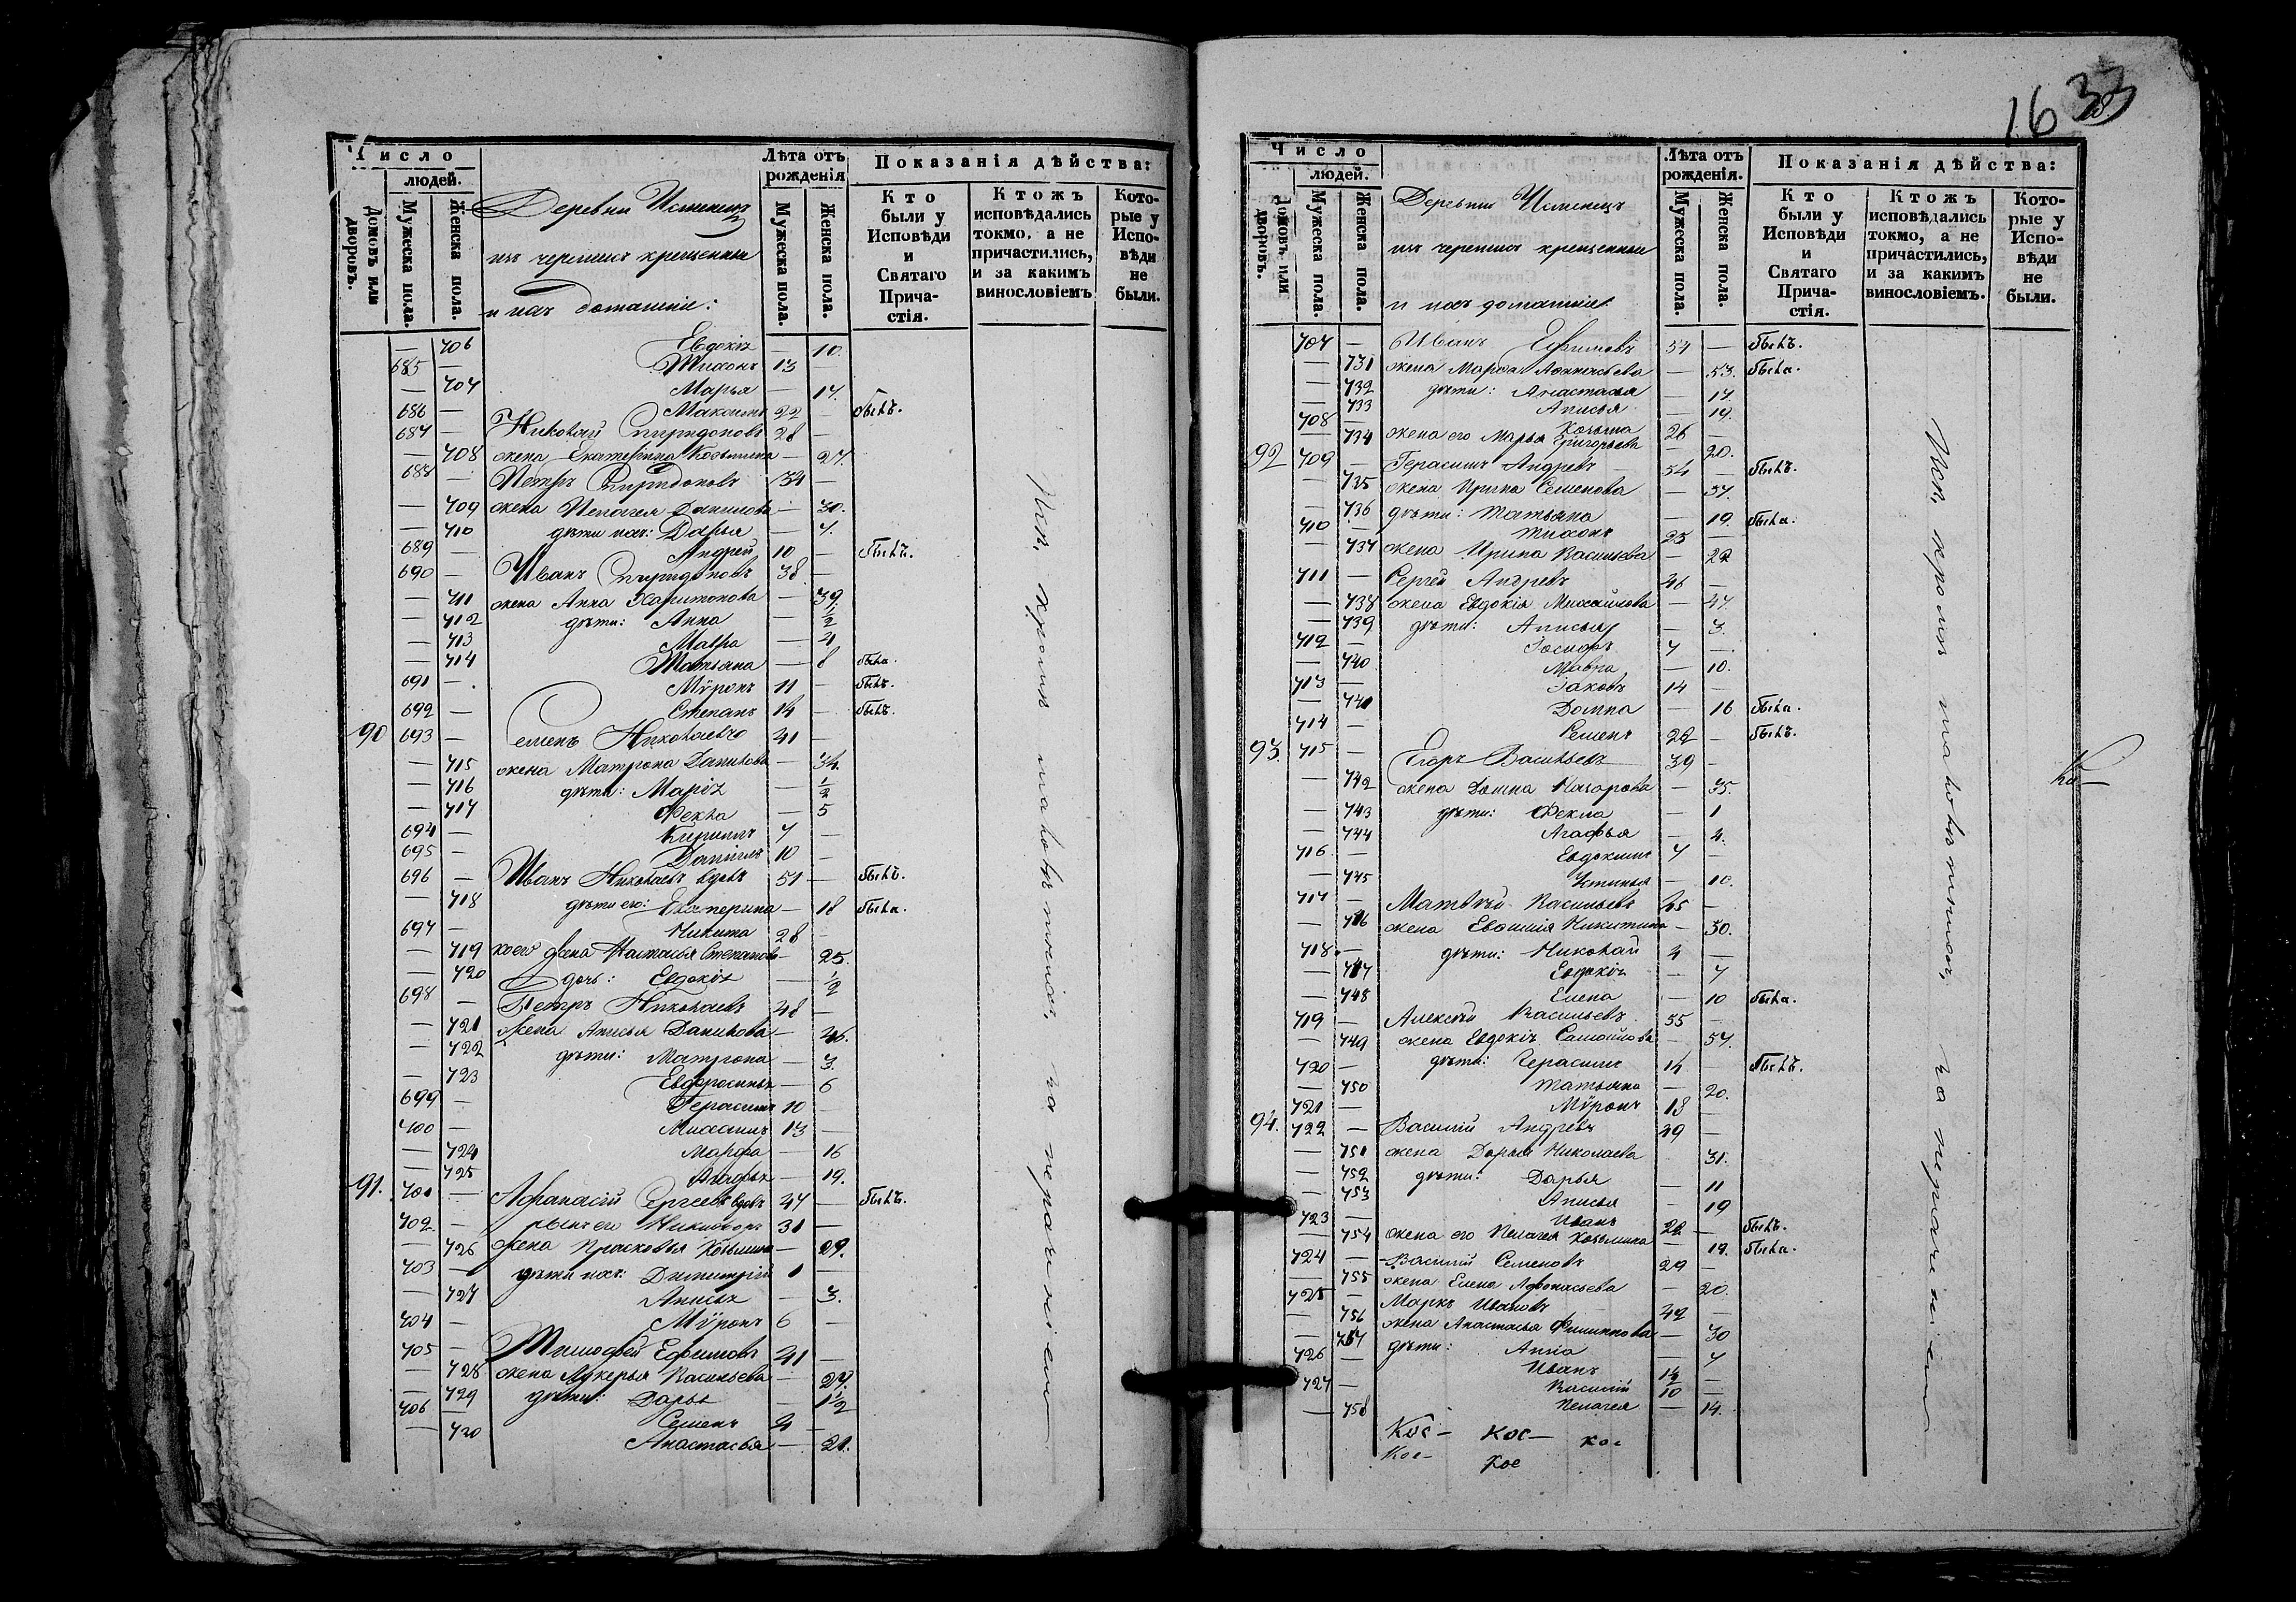 Число
людей.
Домовъ или дворовъ.
Мужеска пола.
Женска пола.
Деревни Исменецъ
изъ черемисъ крещенныхъ
и ихъ домашнiи:
Лѣта отъ рожденiя
Мужеска пола.
Женска пола.
Показанiя дѣйства:
Кто были у Исповѣди и Святаго Прича-стiя.
Ктожъ исповѣдались токмо, а не причастились, и за какимъ винословiемъ
Кото-рые у Испо-вѣди не были.
— 706 Евдокiя — 10.
685 — Тихонъ 13 —
— 707 Марья — 17.
686 — Максимъ 22 — былъ.
687 — Николай Спиридоновъ 28 —
— 708 жена Екатерина Козьмина — 27.
688 — Петръ Спиридоновъ 34 —
— 709 жена Пелагея Данилова — 30.
— 710 дѣти ихъ: Дарья — 7.
689 — Андрей 10 — былъ.
690 — Иванъ Спиридоновъ 38 —
— 711 жена Анна Харитонова — 39.
— 712 дѣти: Анна — ½
— 713 Мавра — 4
— 714 Татьяна — 8 была.
691 — Мѵронъ 11 — былъ.
692 — Степанъ 14 — былъ.
90 693 — Семенъ Николаевъ 41 —
— 715 жена Матрона Данилова — 34.
— 716 дѣти: Марiя — ½
— 717 Фекла — 5
694 — Кириллъ 7 —
695 — Данiилъ 10 —
696 — Иванъ Николаевъ вдовъ 51 — былъ.
— 718 дѣти его: Екатерина — 18 была.
697 — Никита 28 —
— 719 его жена Настасья Степанова — 25.
— 720 дочь: Евдокiя — ½
698 — Петръ Николаевъ 48 —
— 721 жена Анисья Данилова — 46.
— 722 дѣти: Матрона — 3.
— 723 Евфросинья — 6
699 — Герасимъ 10 —
700 — Михаилъ 13 —
— 724 Марфа — 16
— 725 Агафья — 19.
91. 701 — Афанасiй Сергеевъ вдовъ 47 — былъ.
702. — сынъ его Никифоръ 31 —
— 726 жена Прасковья Козьмина — 29.
703 — дѣти ихъ: Димитрiй 1 —
— 727 Анисья — 3.
704 — Мѵронъ 6 —
705 — Тимофей Ефимовъ 41 —
— 728 жена Лукерья Васильева — 27.
— 729 дѣти: Дарья — 1½
706 — Семенъ 4 —
— 730 Анастасья — 21.
Исп, кромѣ малолѣтнихъ, по нераченiю
16 33
Число
людей.
Домовъ или дворовъ.
Мужеска пола.
Женска пола.
Деревни Исменецъ
изъ черемисъ крещенныи
и ихъ домашнiе.
Лѣта отъ рожденiя.
Мужеска пола.
Женска пола.
Показанiя дѣйства:
Кто были у Исповѣди и Святаго Прича-стiя.
Ктожъ исповѣдались токмо, а не причастились, и за какимъ винословiемъ.
Кото-рые у Испо-вѣди не были.
707 — Иванъ Ефимовъ 54 — былъ.
— 731 жена Марфа Афанасьева — 53. была.
— 732 дѣти: Анастасья — 17
— 733 Анисья — 19.
708 — Козьма 26 —
— 734 жена его Марья Григорьева — 20.
92 709 — Герасимъ Андревъ 54 — былъ.
— 735 жена Ирина Семенова — 57.
— 736 дѣти: Татьяна — 19. была.
710 — Тихонъ 25 —
— 737 жена Ирина Васильева — 22
711 — Сергей Андревъ 46 —
— 738 жена Евдокiя Михайлова — 47.
— 739 дѣти: Анисья — 3.
712 — Iосифъ 7 —
— 740 Мавра — 10.
713 — Iаковъ 14 —
— 741 Домна — 16 была.
714 — Семенъ 22 — былъ.
93. 715 — Егоръ Васильевъ 39 —
— 742 жена Домна Назарова — 35.
— 743 дѣти: Фекла — 1
— 744 Агафья — 4.
716. — Евдокимъ 7 —
— 745 Устинья — 10.
717 — Матвѣй Васильевъ 45 —
— 746 жена Евфимiя Никитина — 50.
718. — дѣти: Николай 4 —
— 747 Евдокiя — 7
— 748 Елена — 10 была.
719 — Алексѣй Васильевъ 55 —
— 749 жена Евдокiя Самойлова — 57.
720 — дѣти: Герасимъ 14 — былъ.
— 750 Татьяна — 20.
721 — Мѵронъ 18 —
94. 722 — Василiй Андревъ 49 —
— 751 жена Дарья Николаева 31.
— 752 дѣти: Дарья — 11
— 753 Анисья — 19
723 — Иванъ 22 — былъ.
— 754 жена его Пелагея Козьмина — 19. была.
724 — Василiй Семеновъ 29 —
— 755 жена Елена Афонасьева — 20.
725 — Маркъ Ивановъ 42 —
— 756 жена Анастасья Филиппова — 30
— 757 дѣти: Анна — 7
726 — Иванъ 1½ —
727 — Василiй 10 —
— 758 Пелагея — 14.
Кос- кос- кос
Кос- кос
Исп, кромѣ малолѣтнихъ, по нераченiю